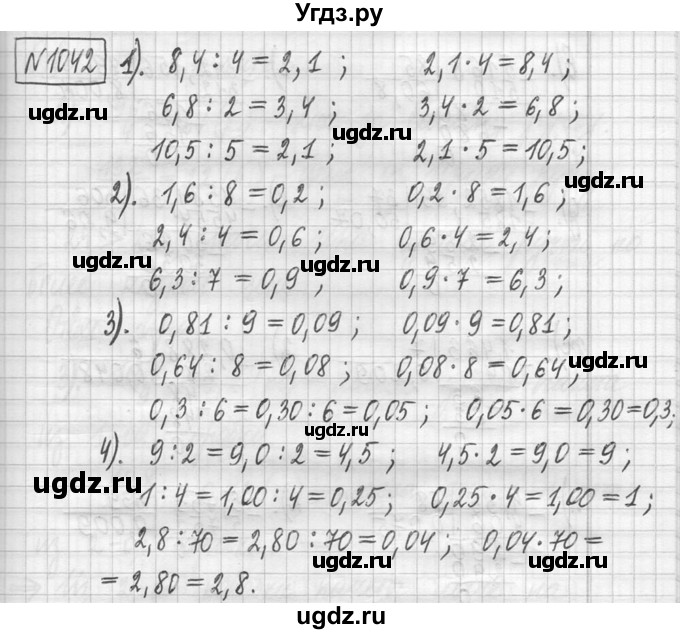 Угдз.ру
N1042 1). 8,4 : 4 = 2,1 ; 2,1 · 4 = 8,4 ;
ugdz.ru
6,8 : 2 = 3,4 ; 3,4 · 2 = 6,8 ;
ugdz.ru ugdz.ru
10,5 : 5 = 2,1 ; 2,1 · 5 = 10,5 ;
2). 1,6 : 8 = 0,2 ; 0,2 · 8 = 1,6 ;
ugdz.ru
2,4 : 4 = 0,6 ; 0,6 · 4 = 2,4 ;
ugdz.ru ugdz.ru
6,3 : 7 = 0,9 ; 0,9 · 7 = 6,3 ;
3). 0,81 : 9 = 0,09 ; 0,09 · 9 = 0,81 ;
0,64 : 8 = 0,08 ; 0,08 · 8 = 0,64 ;
ugdz.ru ugdz.ru
0,3 : 6 = 0,30 : 6 = 0,05 ; 0,05 · 6 = 0,30 = 0,3 ;
ugdz.ru
4). 9 : 2 = 9,0 : 2 = 4,5 ; 4,5 · 2 = 9,0 = 9 ;
ugdz.ru ugdz.ru
1 : 4 = 1,00 : 4 = 0,25 ; 0,25 · 4 = 1,00 = 1 ;
2,8 : 70 = 2,80 : 70 = 0,04 ; 0,04 · 70 =
ugdz.ru
= 2,80 = 2,8.
ugdz.ru ugdz.ru